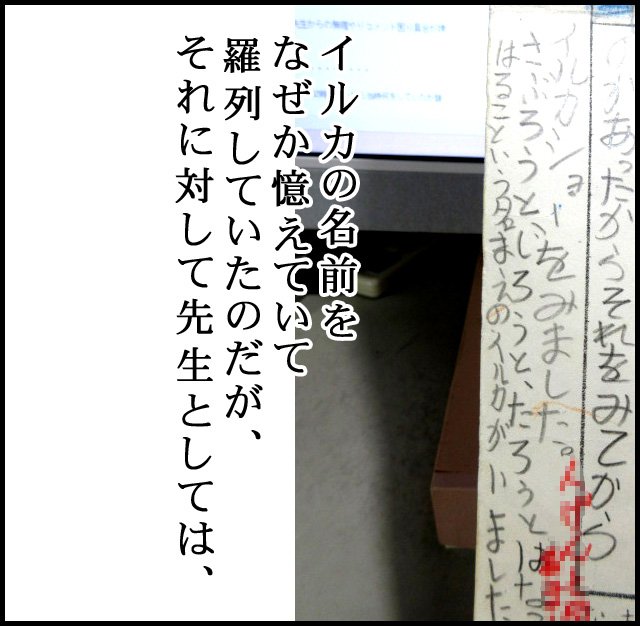 のがあったからそれをみてから
イルカショーをみました。
さぶろうと、じろうと、たろうとはな
はるこという名まえのイルカがいました
イルカの名前を
なぜか憶えていて
羅列していたのだが、
それに対して先生としては、